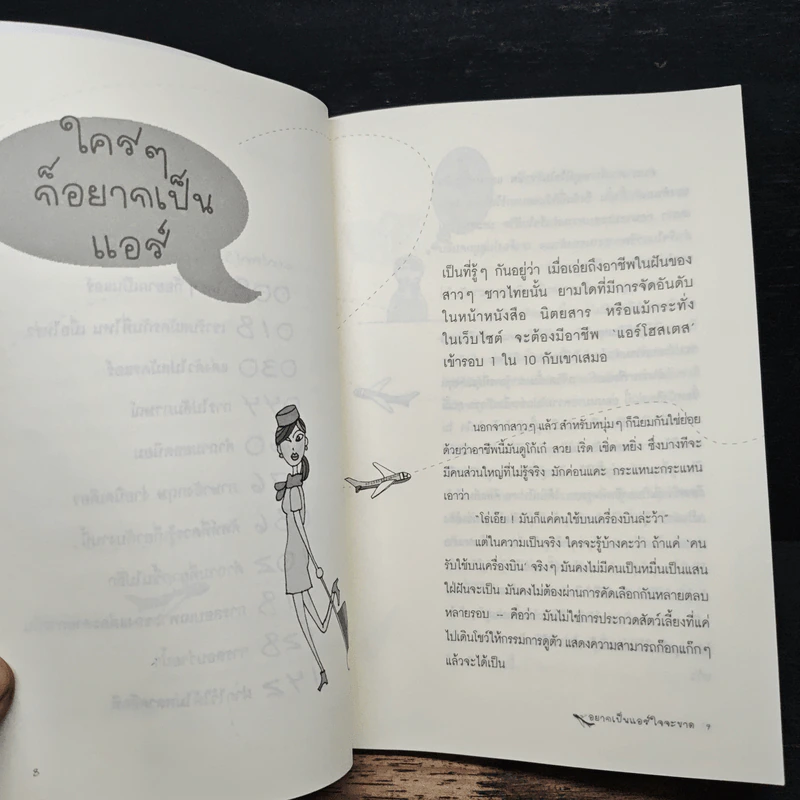 ใครๆ
ก็อยากเป็น
แอร์
8
เป็นที่รู้ๆ กันอยู่ว่า เมื่อเอ่ยถึงอาชีพในฝันของ
สาวๆ ชาวไทยนั้น ยามใดที่มีการจัดอันดับ
ในหน้าหนังสือ นิตยสาร หรือแม้กระทั่ง
ในเว็บไซต์ จะต้องมีอาชีพ 'แอร์โฮสเตส'
เข้ารอบ 1 ใน 10 กับเขาเสมอ
นอกจากสาวๆ แล้ว สำหรับหนุ่มๆ ก็นิยมกันใช่ย่อย
ด้วยว่าอาชีพนี้มันดูโก้เก๋ สวย เริ่ด เชิด หยิ่ง ซึ่งบางทีจะ
มีคนส่วนใหญ่ที่ไม่รู้จริง มักค่อนแคะ กระแหนะกระแหน
เอาว่า
"โธ่เอ๊ย ! มันก็แค่คนใช้บนเครื่องบินล่ะว้า"
แต่ในความเป็นจริง ใครจะรู้บ้างคะว่า ถ้าแค่ 'คน
รับใช้บนเครื่องบิน' จริงๆ มันคงไม่มีคนเป็นหมื่นเป็นแสน
ใฝ่ฝันจะเป็น มันคงไม่ต้องผ่านการคัดเลือกกันหลายตลบ
หลายรอบ -- คือว่า มันไม่ใช่การประกวดสัตว์เลี้ยงที่แค่
ไปเดินโชว์ให้กรรมการดูตัว แสดงความสามารถก๊อกแก๊กๆ
แล้วจะได้เป็น
อยากเป็นแอร์ใจจะขาด 9